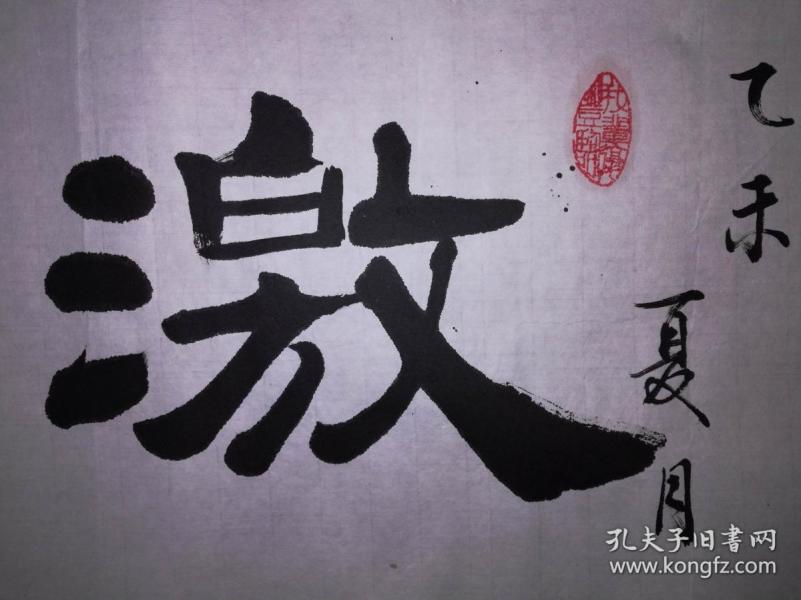 乙未
夏月
激
孔夫子旧書网
www.kongfz.com